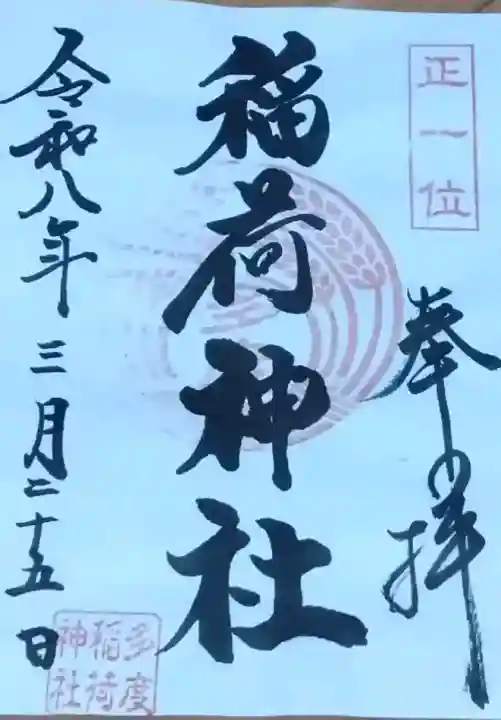 正一位
奉拝
稲荷神社
令和八年三月二十五日
多度
稲荷
神社